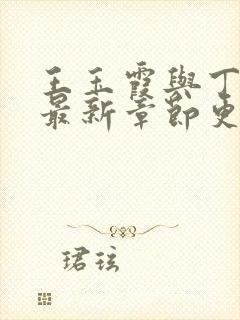 王玉霞與丁
最新章節更
珺玹